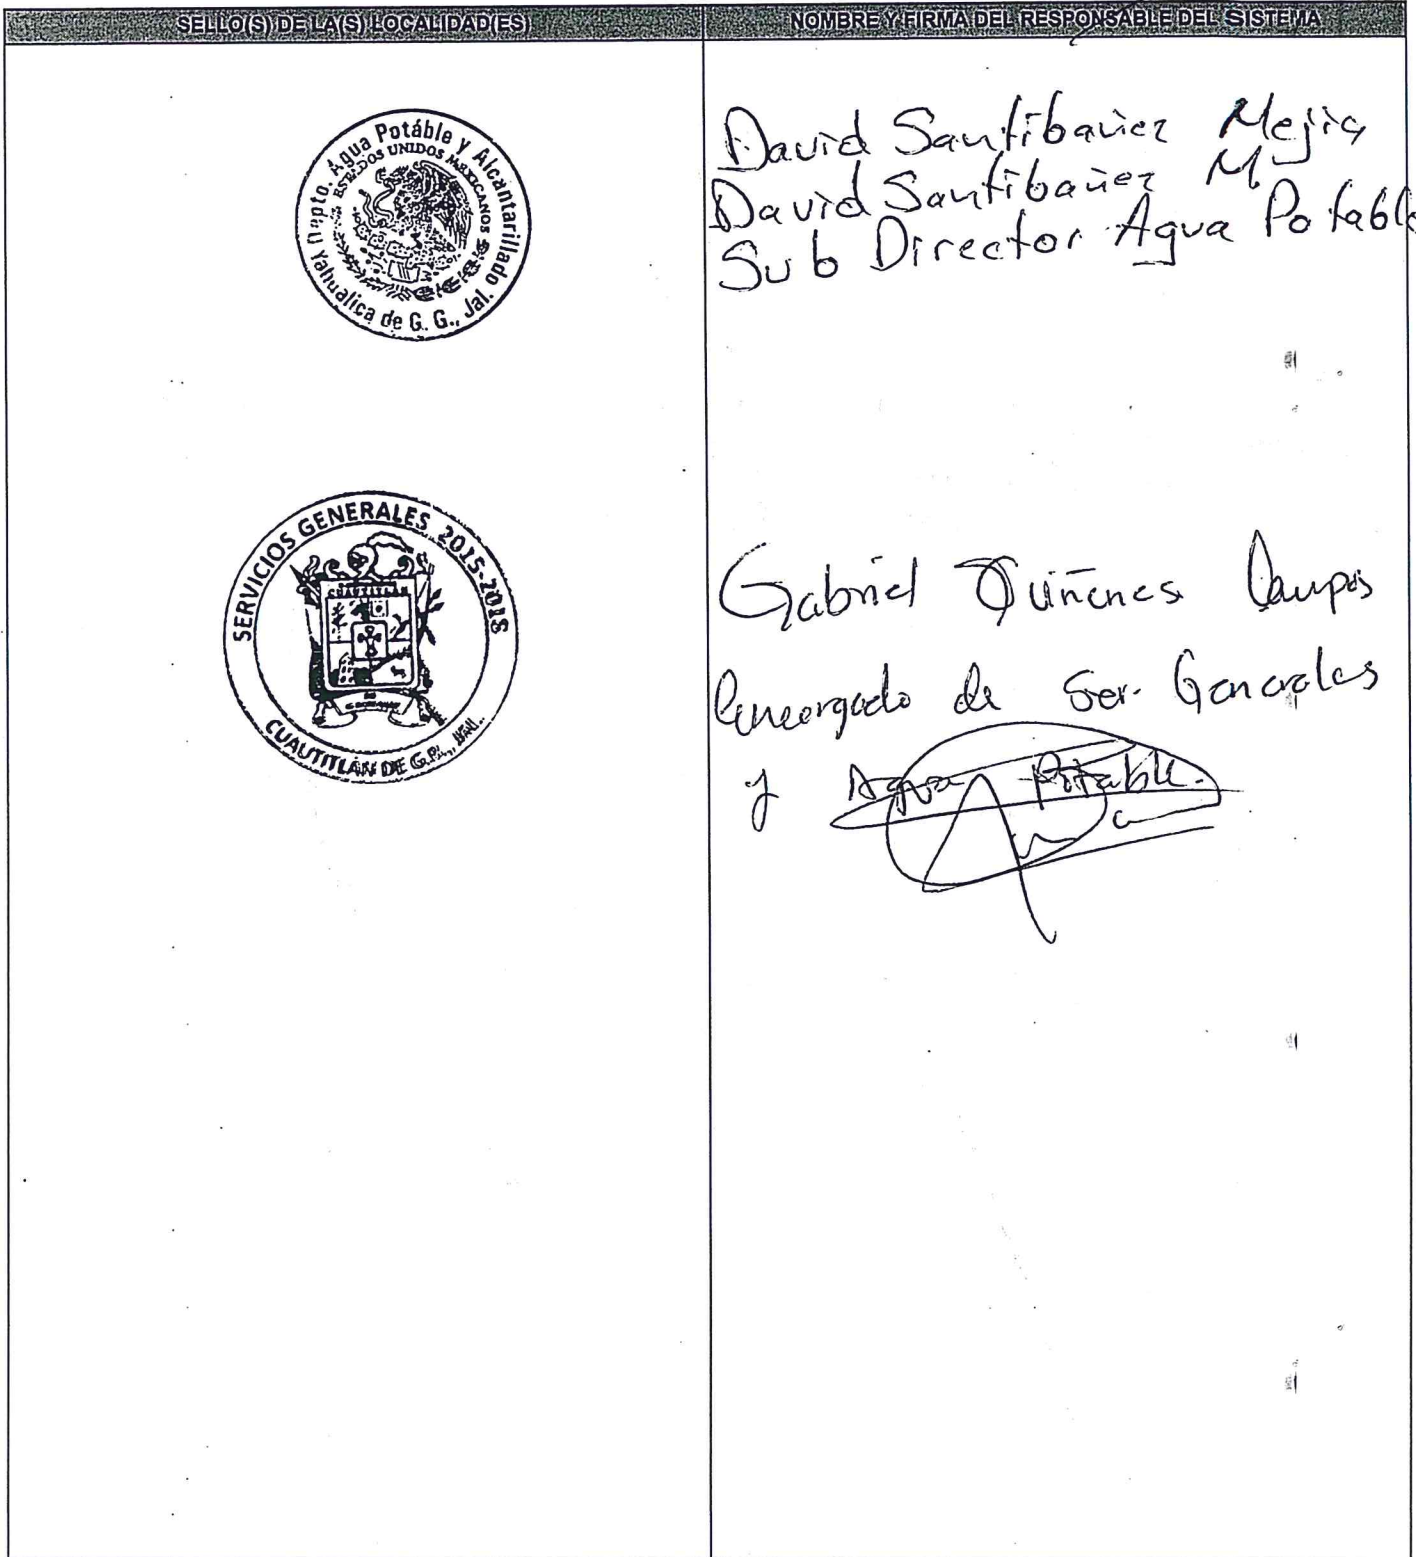 SELLO(S) DE LA(S) LOCALIDAD(ES)
NOMBRE Y FIRMA DEL RESPONSABLE DEL SISTEMA
Depto. Agua Potáble y Alcantarillado
ESTADOS UNIDOS MEXICANOS
Yahualica de G. G., Jal.
David Santibañez Mejia
David Santibañez M
Sub Director Agua Potable
SERVICIOS GENERALES 2015-2018
CUAUTITLÁN
CUAUTITLÁN DE G.B., JAL.
Gabriel Quiñones Campos
Encargado de Ser. Generales
y Agua Potable.